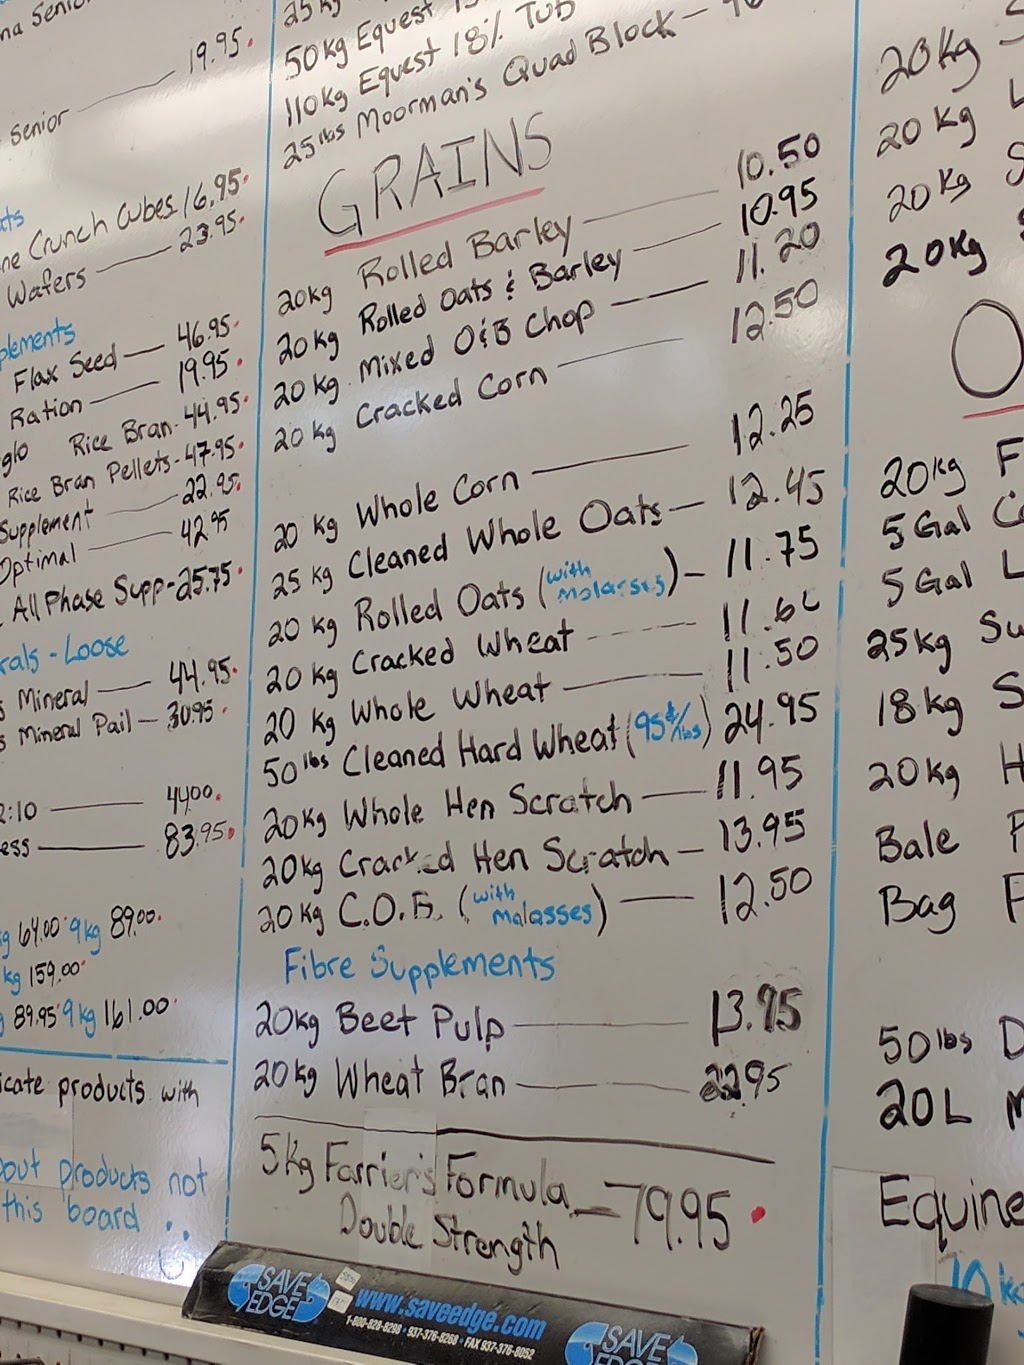 na Senio
19.95.
Senior
ne Crunch Cubes 16.95.
Wafers — 23.95.
plements
Flax Seed — 46.95.
Ration — 19.95.
glo Rice Bran - 44.95.
Rice Bran Pellets - 47.95.
Supplement — 22.95.
Optimal — 42.95
All Phase Supp - 25.75.
rals - Loose
s Mineral — 44.95.
s Mineral Pail — 30.95.
2:10 — 44.00.
ess — 83.95.
g 64.00 9kg 89.00.
kg 159.00
89.95 9kg 161.00
icate products with
out products not
this board
25kg
50kg Equest
110kg Equest 18% Tub
25lbs Moorman's Quad Block —
GRAINS
20kg Rolled Barley — 10.50
20kg Rolled Oats & Barley — 10.95
20kg Mixed O&B Chop — 11.20
20kg Cracked Corn — 12.50
20kg Whole Corn — 12.25
25kg Cleaned Whole Oats — 12.45
20kg Rolled Oats (with Molasses) — 11.75
20kg Cracked Wheat — 11.6
20kg Whole Wheat — 11.50
50lbs Cleaned Hard Wheat (95¢/lbs) 24.95
20kg Whole Hen Scratch — 11.95
20kg Cracked Hen Scratch — 13.95
20kg C.O.B. (with Malasses) — 12.50
Fibre Supplements
20kg Beet Pulp — 13.95
20kg Wheat Bran — 22.95
5kg Farrier's Formula — 79.95.
Double Strength
SAVE EDGE www.saveedge.com SAVE EDGE
1-800-828-6290 • 937-376-8268 • FAX 937-376-8052
20kg
20kg
20kg
20kg
O
20kg F
5 Gal
5 Gal L
25kg Su
18kg S
20kg H
Bale
Bag
50lbs D
20L M
Equine
10k